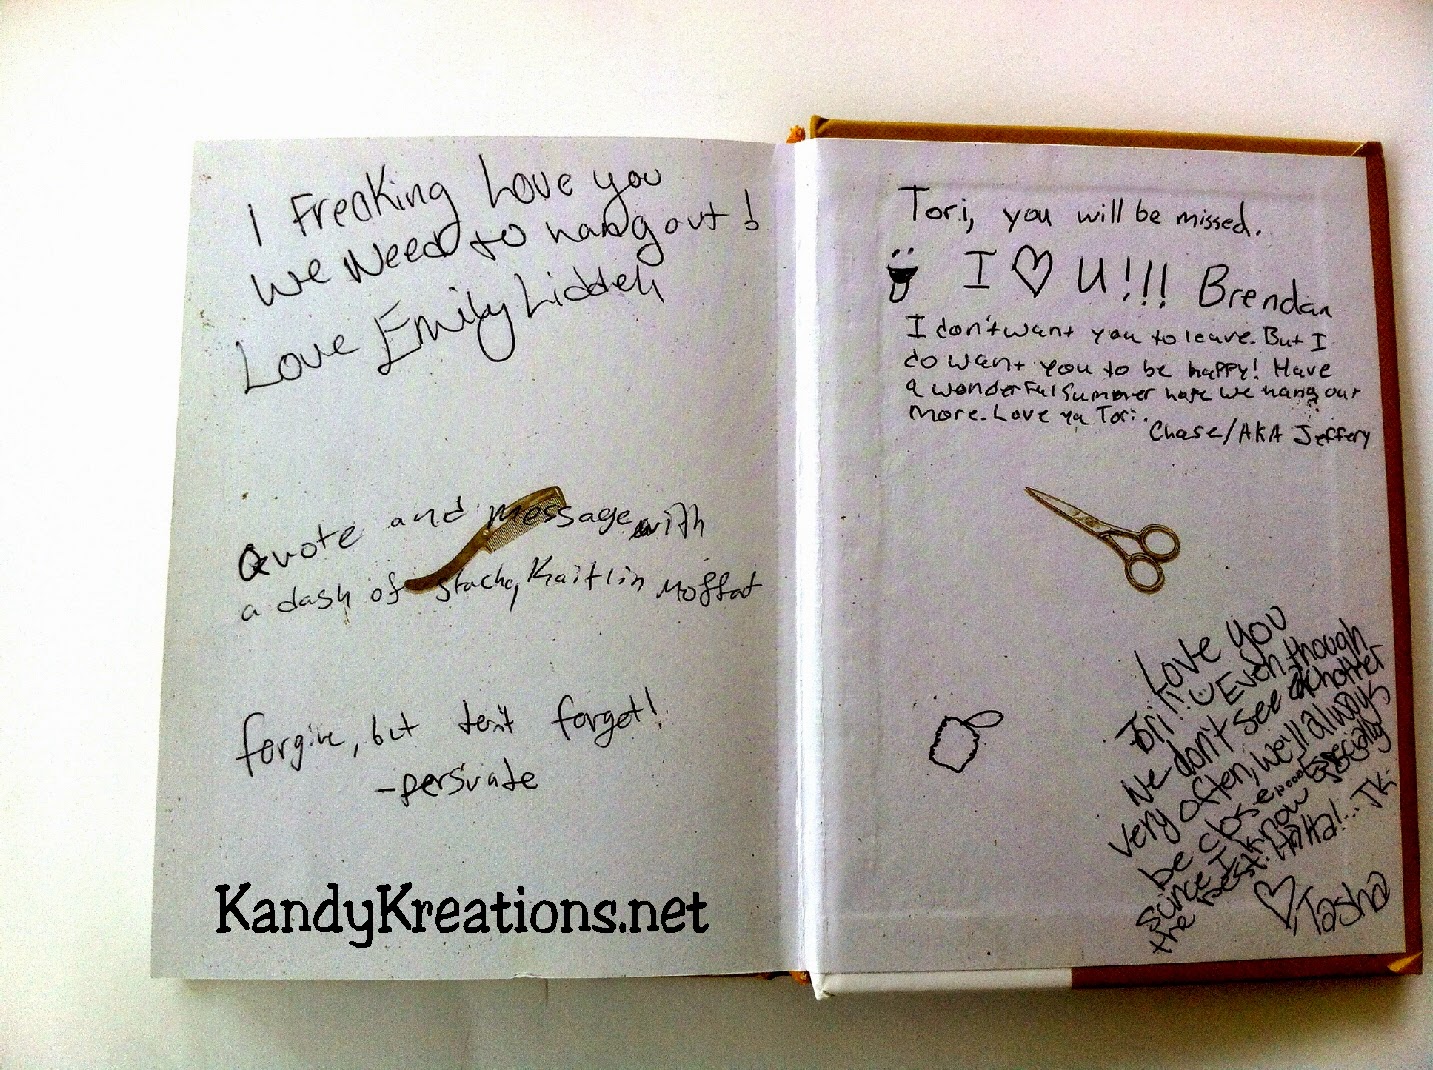 I Freaking Love you
We Need to hang out!
Love Emily Liddell
Quote and message with
a dash of stache, Kaitlin Moffat
forgive, but don't forget!
-persuate
KandyKreations.net
Tori, you will be missed.
I ♡ U!!! Brendan
I don't want you to leave. But I
do want you to be happy! Have
a wonderful Summer hope we hang out
more. Love ya Tori.
Chase/AKA Jeffery
Love you
Tori!! Even though
We don't see eachotter
very often, we'll always
be close.... Especially
since I know
the best. HaHa!... JK
♡, Tasha